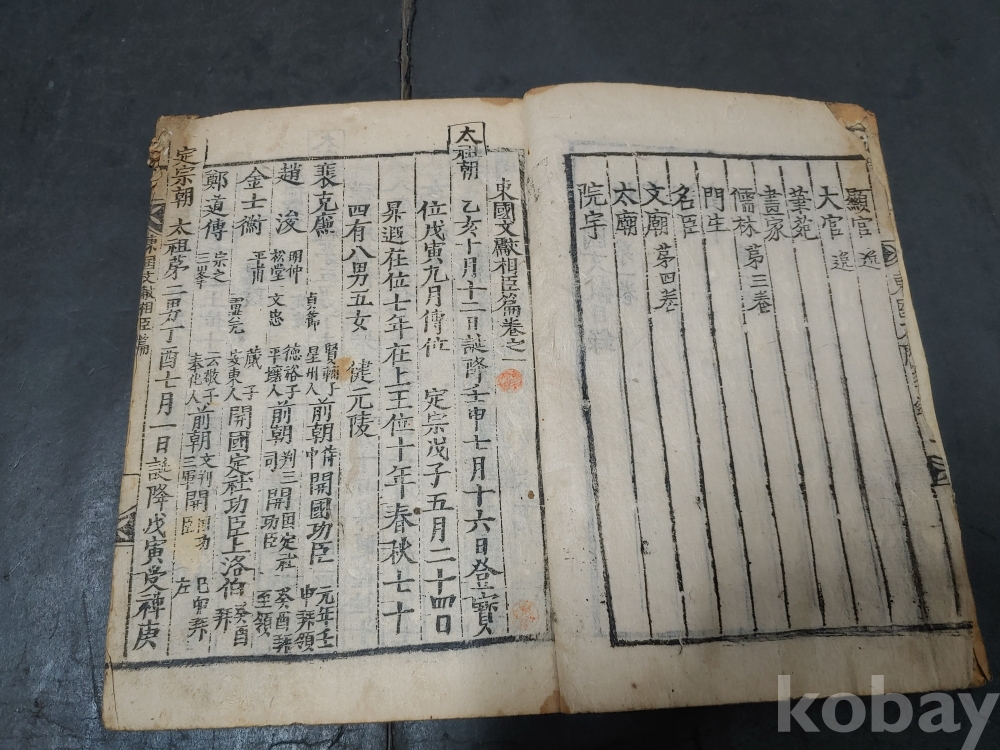 顯官
大官
華苑
畫家
儒林 第三卷
門生
名臣
文廟 第四卷
太廟
院宇
東國文獻相臣篇卷之一
太祖朝 乙亥十月十一日誕降壬申七月十六日登寶
位戊寅九月傳位 定宗戊子五月二十四日
昇遐在位七年在上王位十年春秋七十
四有八男五女 健元陵
裵克廉 貞節 星州人 前朝 開國功臣 元年壬申拜領
趙浚 明仲 松堂 文忠 德裕子 平壤人 前朝判三司 開國定社功臣 癸酉拜至領
金士衡 平甫 安東人 開國定社功臣上洛伯
鄭道傳 宗之 三峯 云敬子 奉化人 前朝 三軍 開國功臣 左
定宗朝 太祖第二男丁酉七月一日誕降戊寅受禪庚
kobay